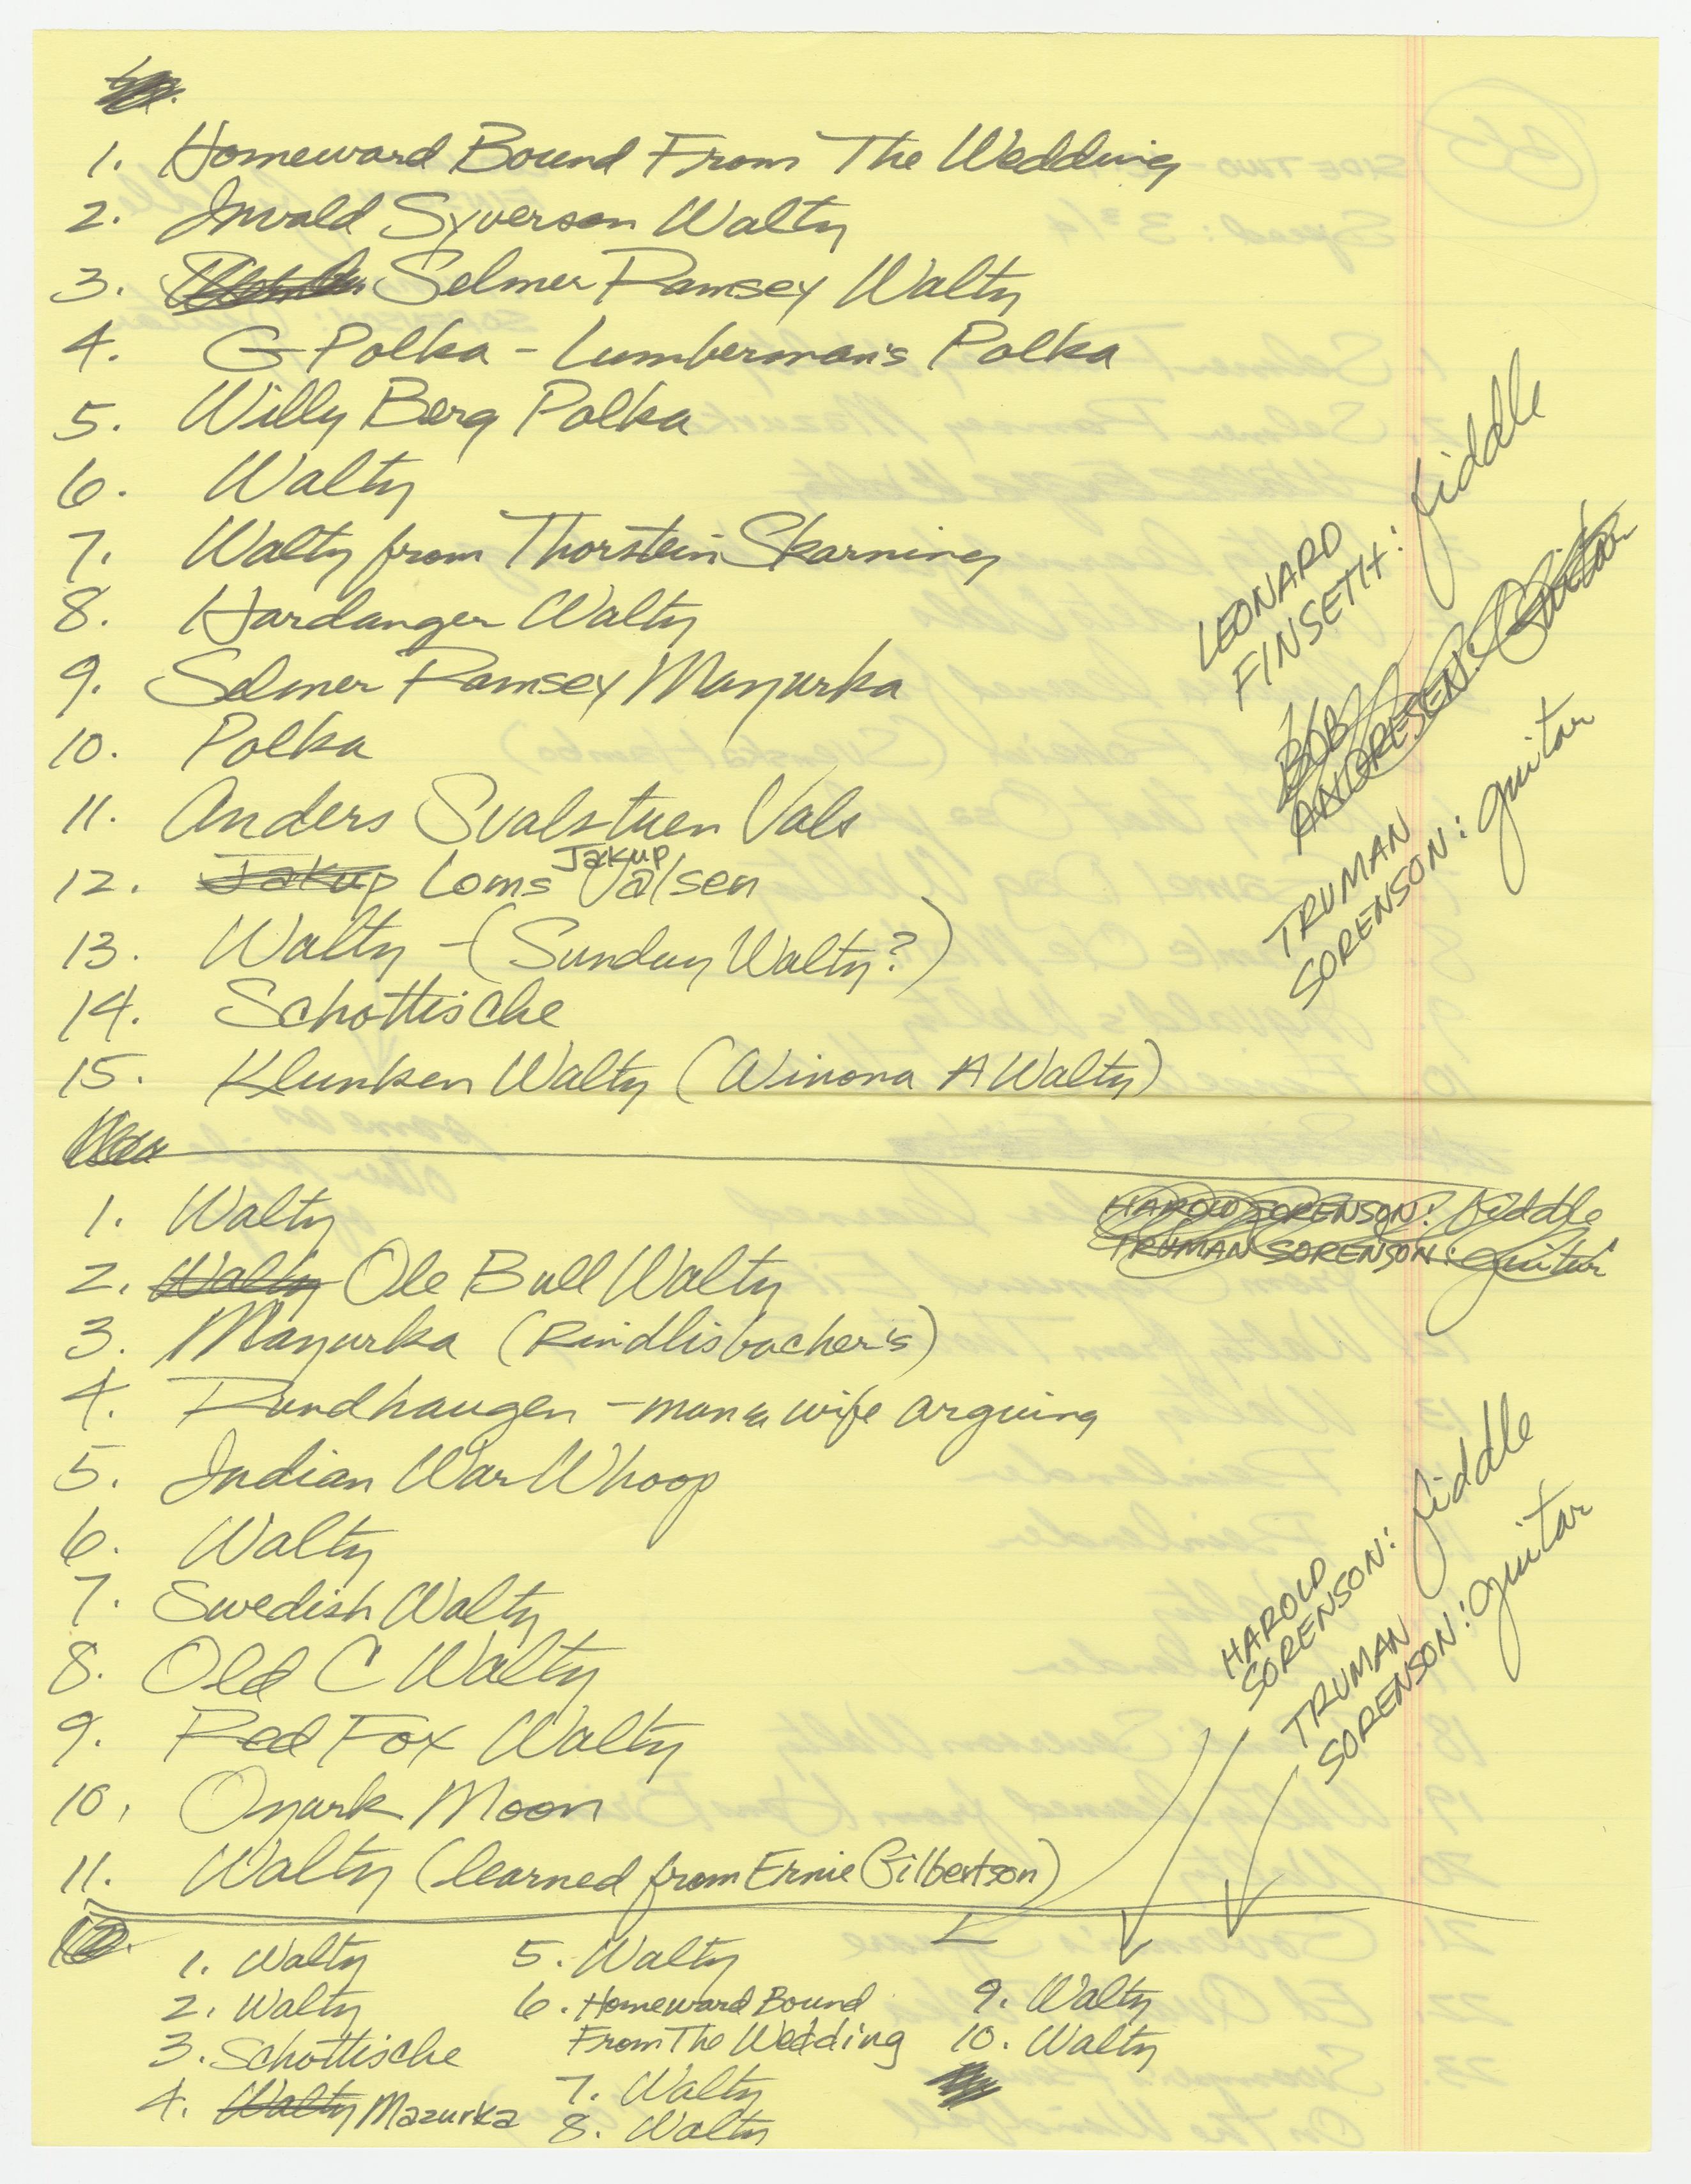 1. Homeward Bound From The Wedding
2. Invald Syverson Waltz
3. Selmer Ramsey Waltz
4. G Polka - Lumberman's Polka
5. Willy Berg Polka
6. Waltz
7. Waltz from Thorstein Skarning
8. Hardanger Waltz
9. Selmer Ramsey Mazurka
10. Polka
11. Anders Svalstuen Vals
12. Jakup Loms Jakup Valsen
13. Waltz - (Sunday Waltz?)
14. Schottische
15. Klunken Waltz (Winona A Waltz)
LEONARD
FINSETH: fiddle
BOB
ANDRESEN: Guitar
TRUMAN
SORENSON: guitar
1. Waltz
HAROLD SORENSON: fiddle
TRUMAN SORENSON: Guitar
2. Waltz Ole Bull Waltz
3. Mazurka (Rindlisbacher's)
4. Rundhaugen - man & wife arguing
5. Indian War Whoop
6. Waltz
7. Swedish Waltz
8. Old C Waltz
9. Red Fox Waltz
10. Ozark Moon
11. Waltz (learned from Ernie Gilbertson)
HAROLD
SORENSON: fiddle
TRUMAN
SORENSON: guitar
1. Waltz
2. Waltz
3. Schottische
4. Waltz Mazurka
5. Waltz
6. Homeward Bound
From The Wedding
7. Waltz
8. Waltz
9. Waltz
10. Waltz